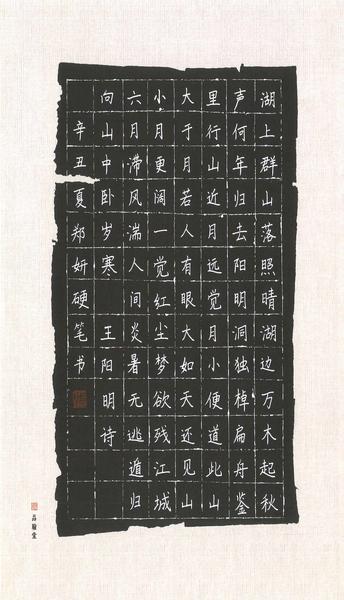 湖上群山落照晴湖边万木起秋
声何年归去阳明洞独棹扁舟鉴
里行山近月远觉月小便道此山
大于月若人有眼大如天还见山
小月更阔一觉红尘梦欲残江城
六月滞风湍人间炎暑无逃遁归
向山中卧岁寒 王阳明诗
辛丑夏郑妍硬笔书
品翰堂